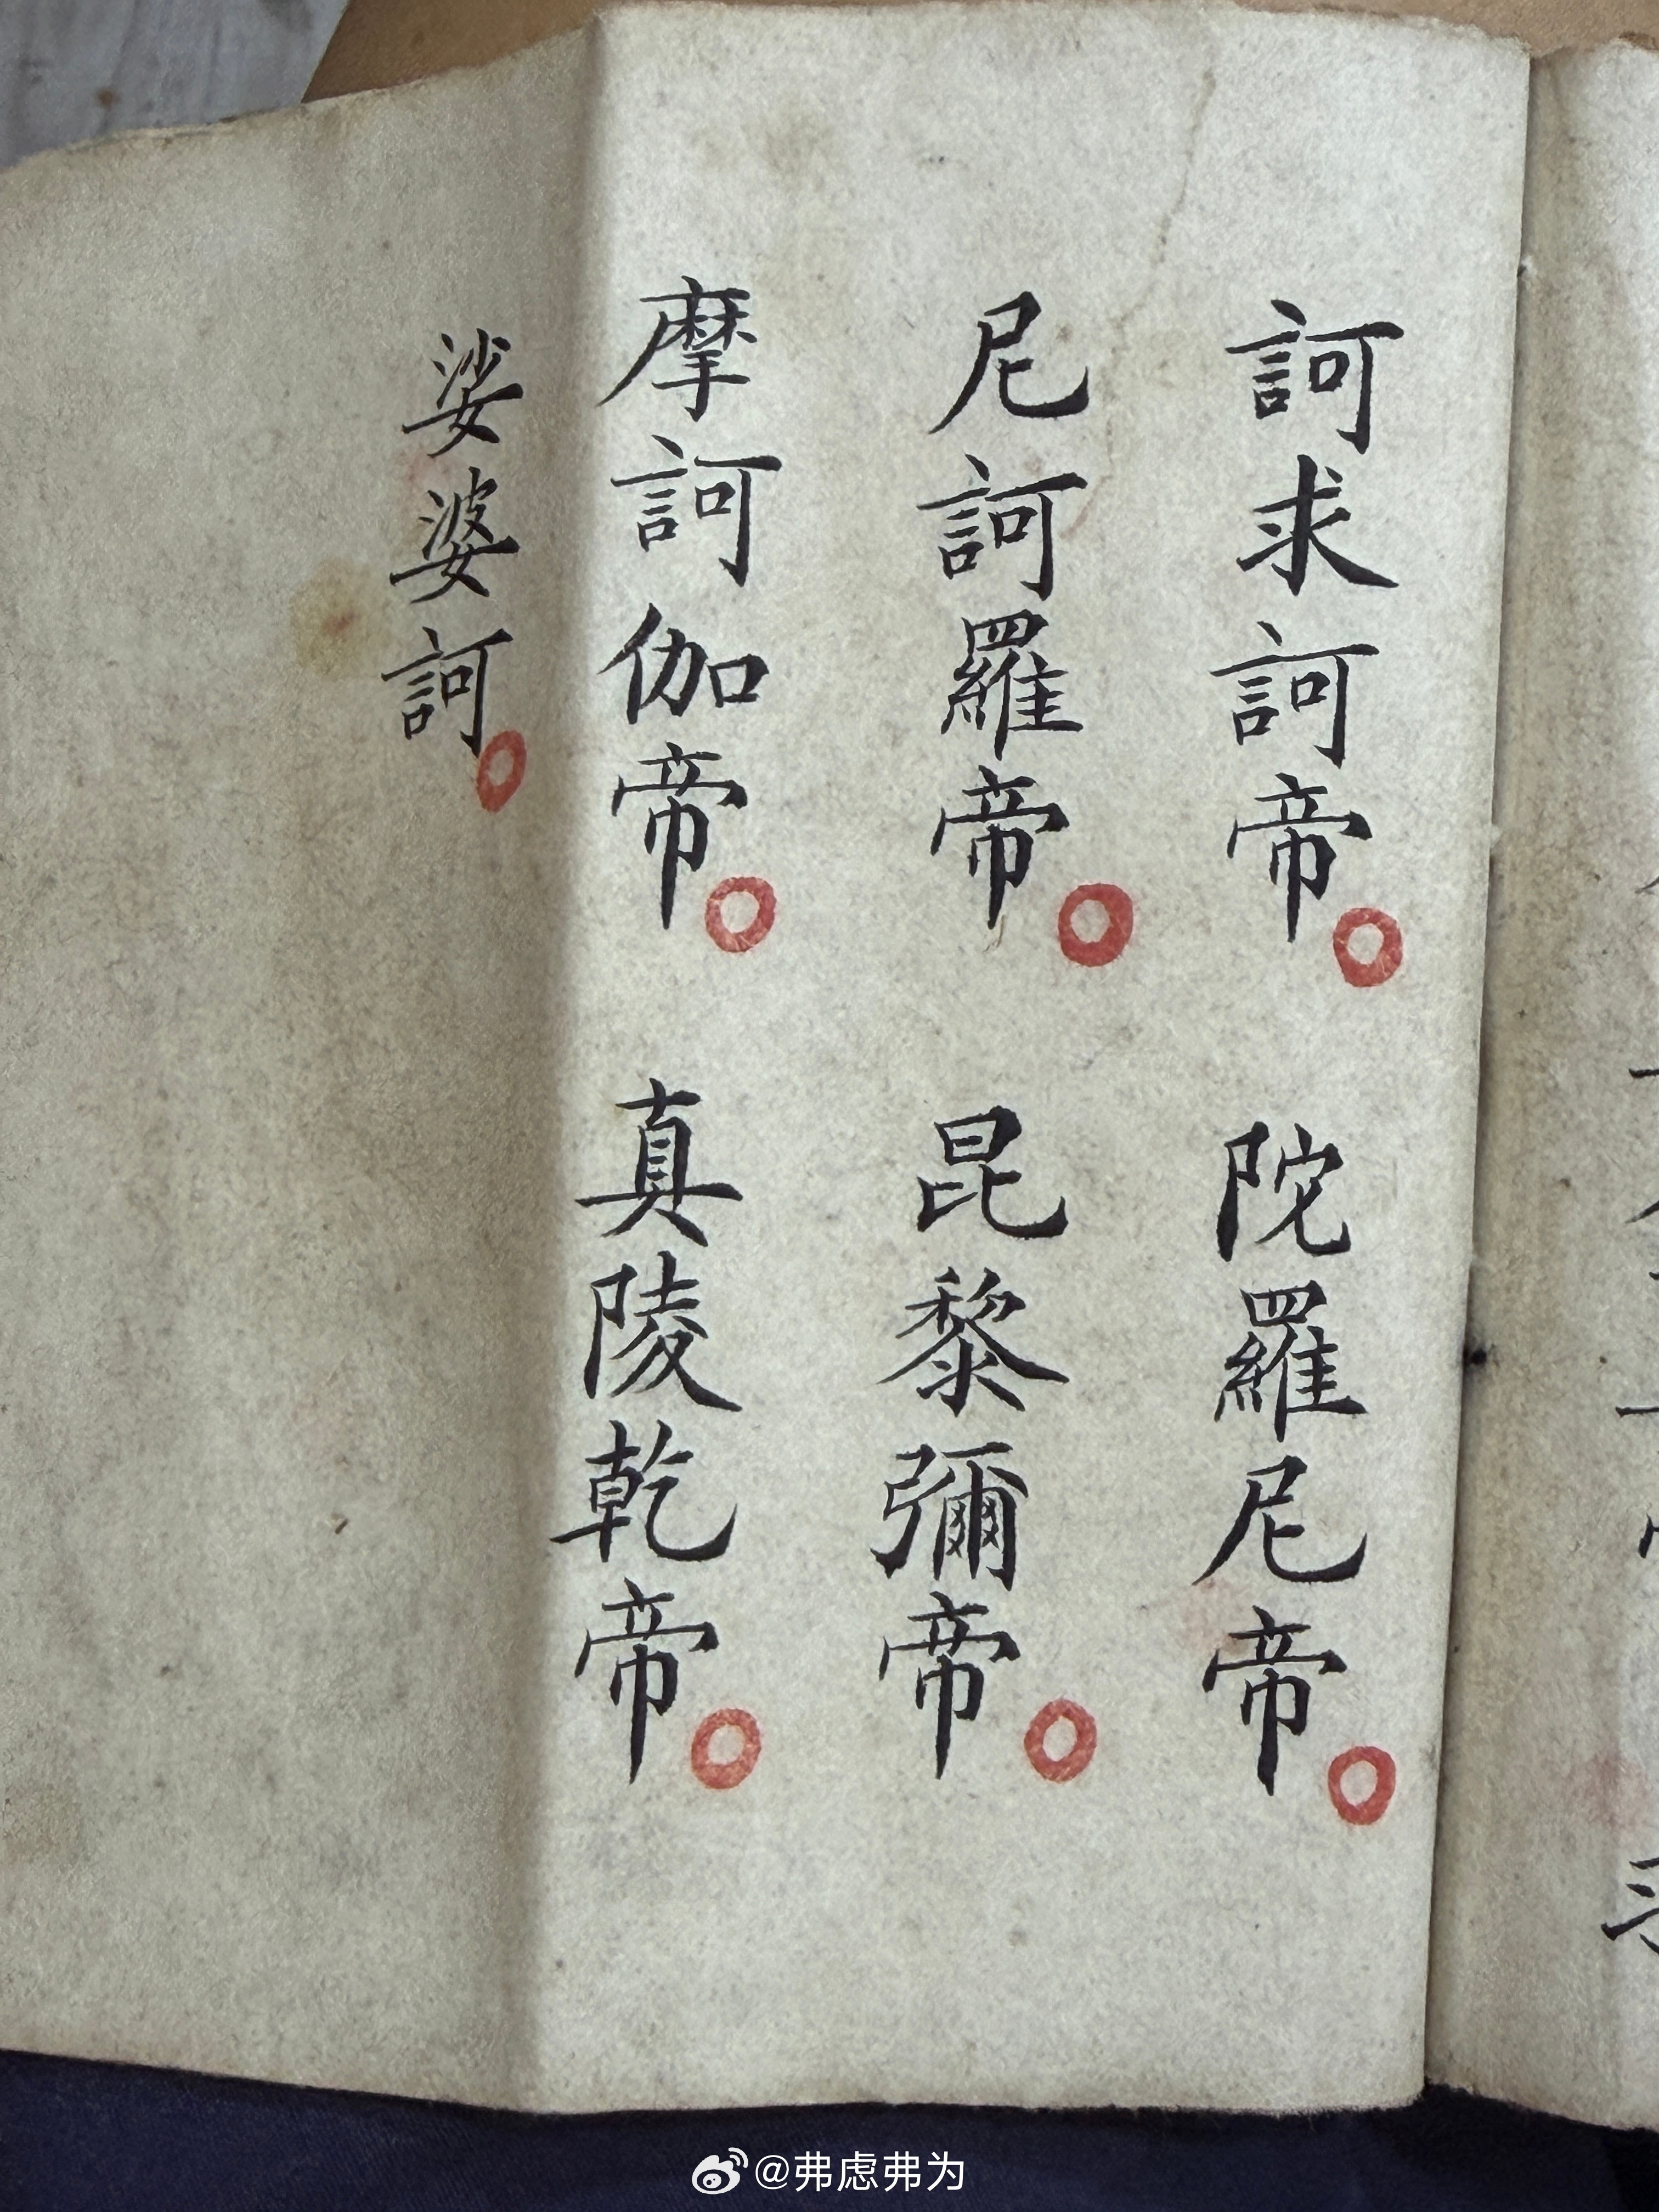 訶求訶帝○ 陀羅尼帝○
尼訶羅帝○ 昆黎彌帝○
摩訶伽帝○ 真陵乾帝○
娑婆訶○
@弗虑弗为